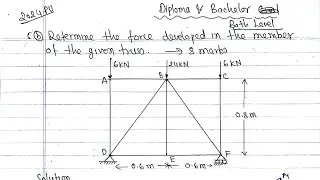 2024 PU
Diploma & Bachelor
Both Level
b) Determine the force developed in the member
of the given truss. → 8 marks
6KN 24KN 6KN
A B C
0.8m
D E F
0.6m 0.6m
Solution